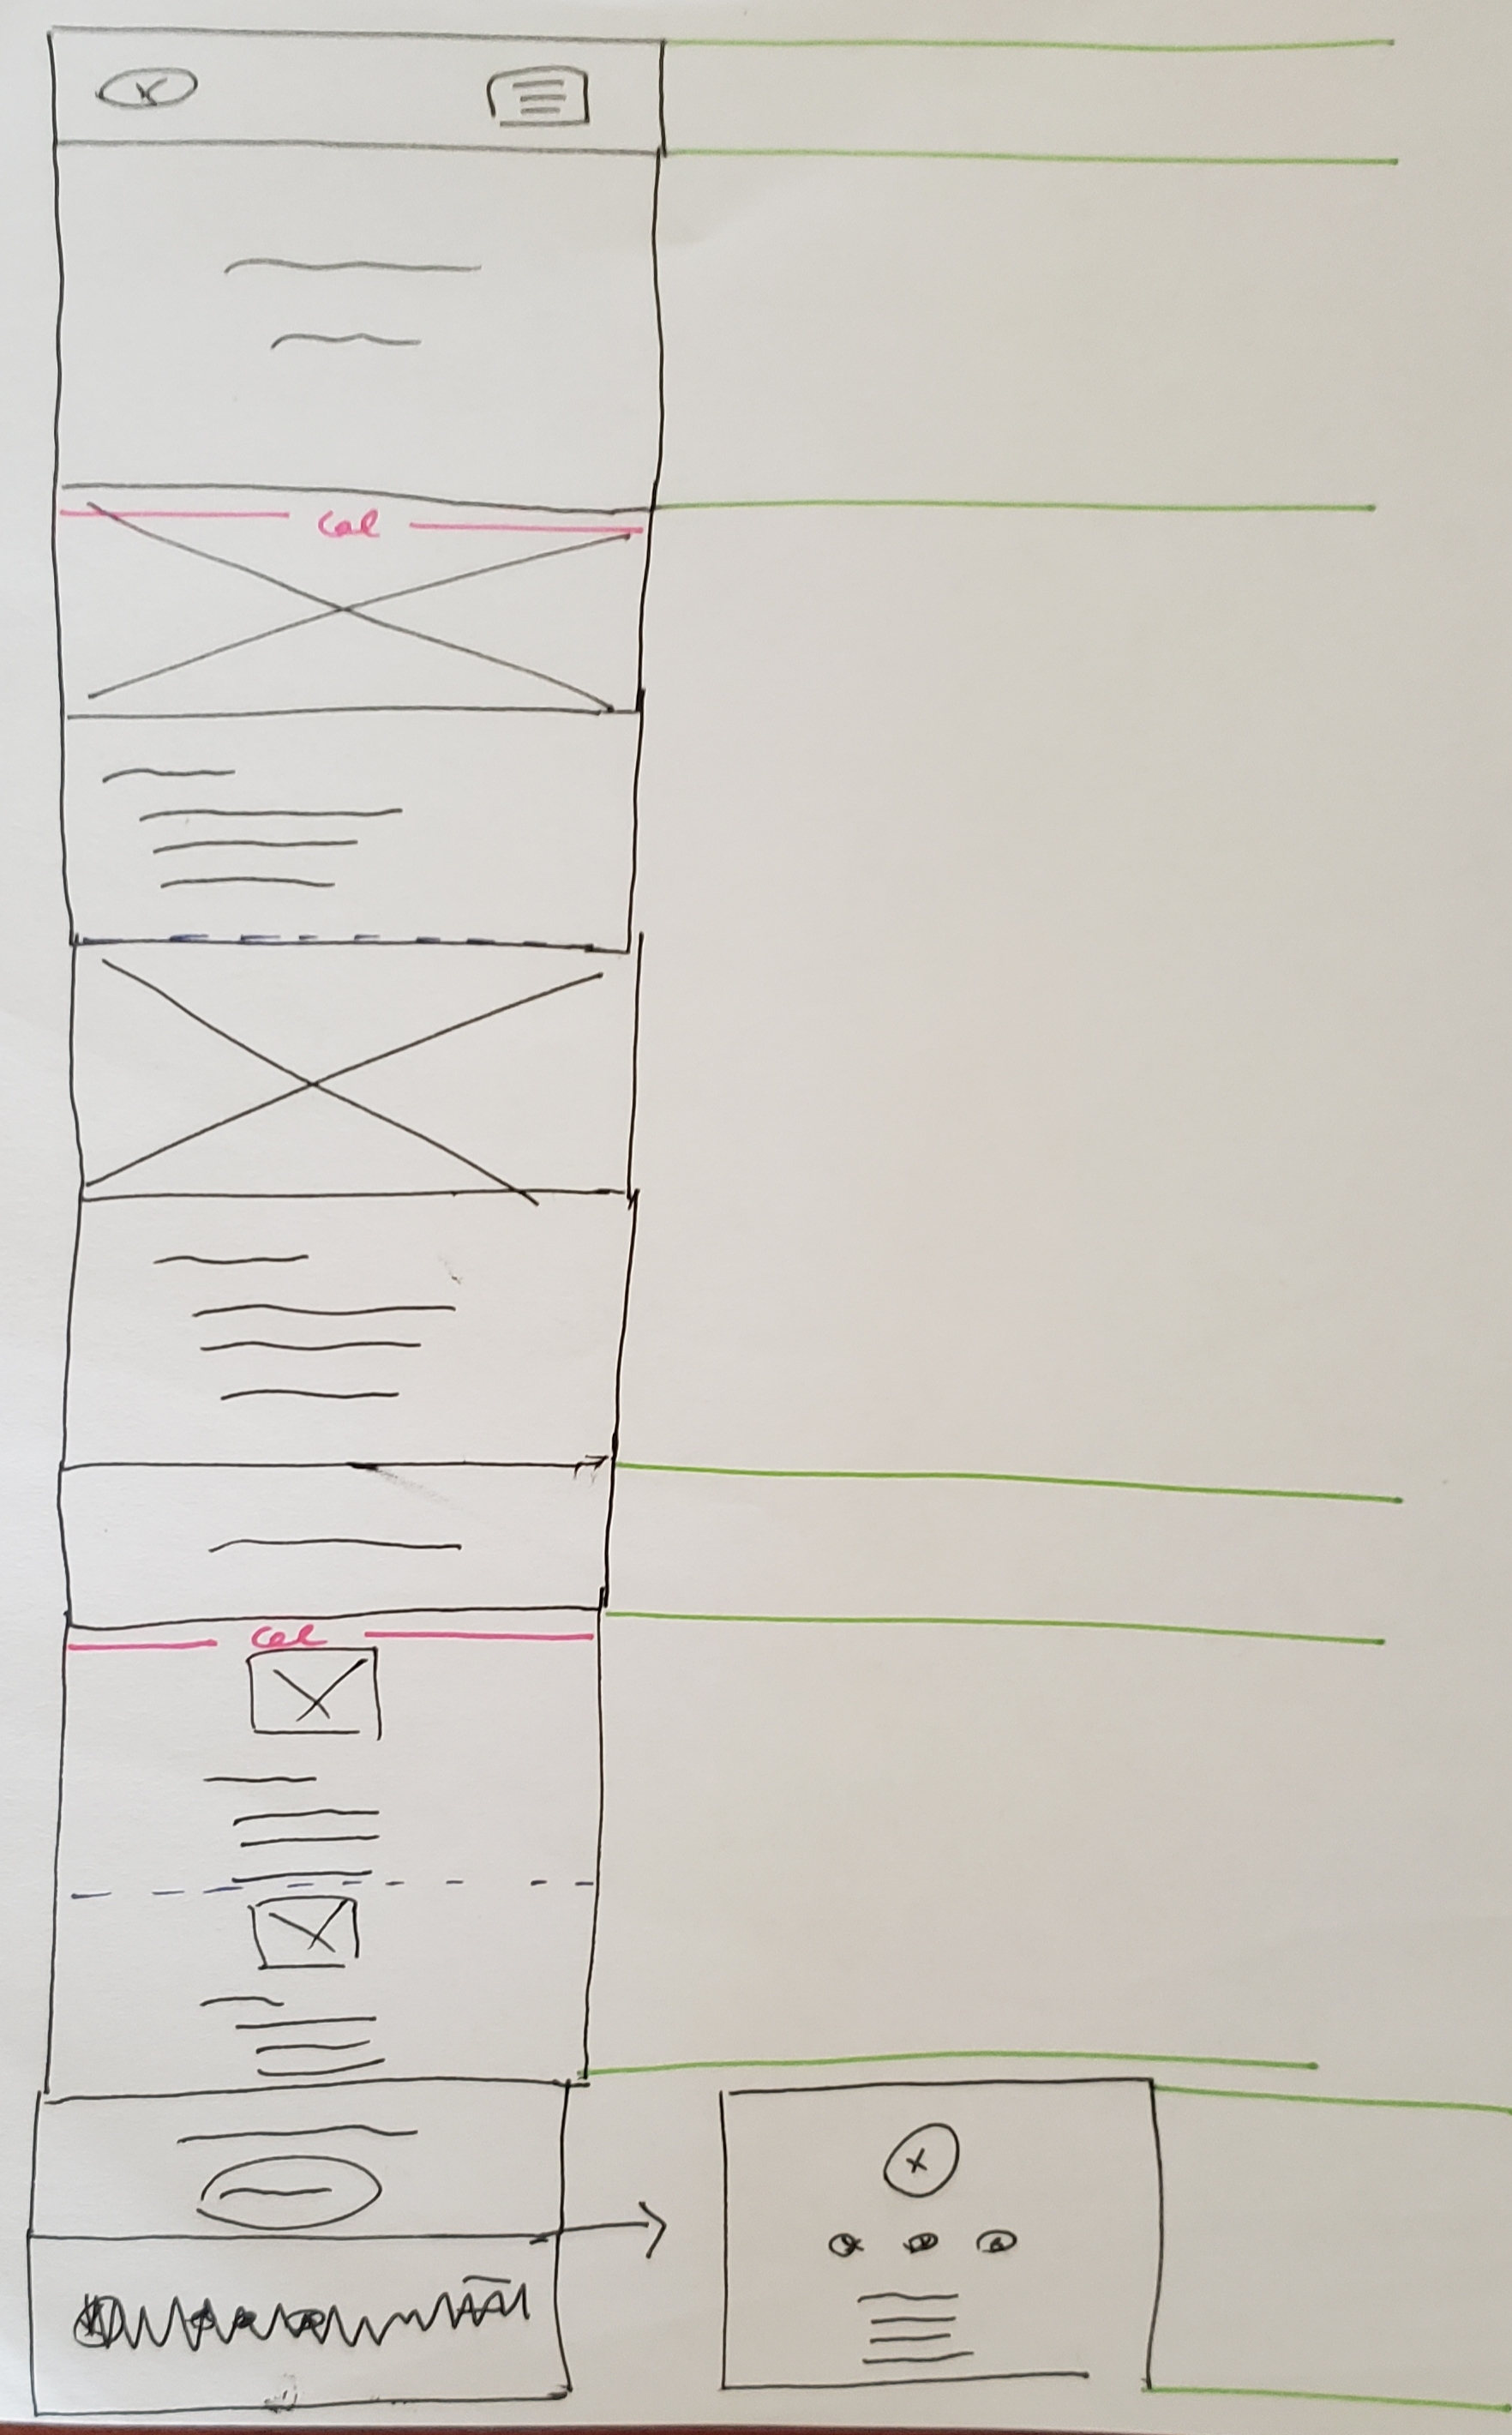 Col
Col